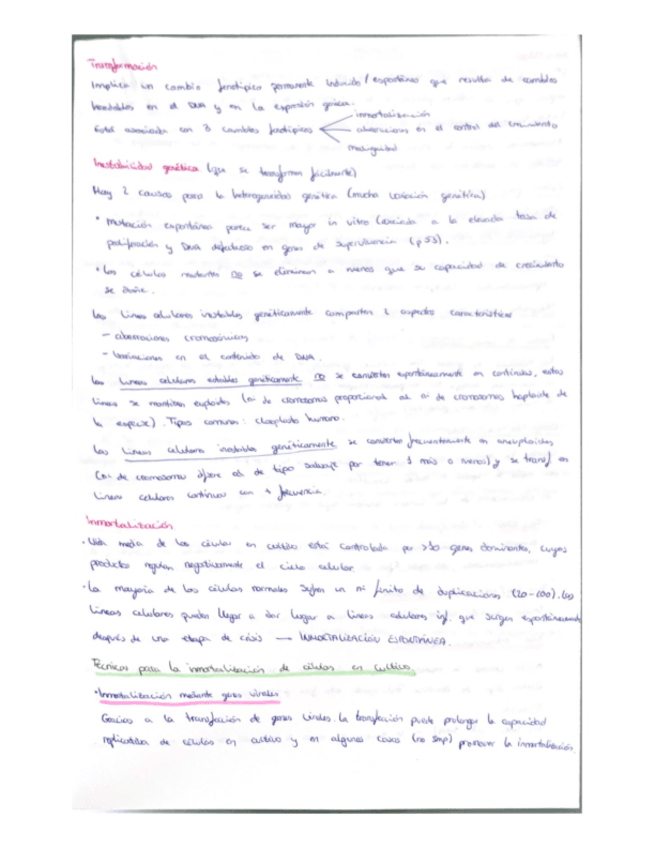 Transformación
Implica un cambio fenotípico permanente inducido / espontáneo que resulta de cambios
heredables en el DNA y en la expresión génica.
Está asociada con 3 cambios fenotípicos
inmortalización
aberraciones en el control del crecimiento
malignidad
Inestabilidad genética (que se transforma fácilmente)
Hay 2 causas para la heterogeneidad genética (mucha variación genética)
• Mutación espontánea parece ser mayor in vitro (asociada a la elevada tasa de
proliferación y DNA defectuoso en genes de supervivencia (p53).
• Las células mutantes no se eliminan a menos que su capacidad de crecimiento
se dañe.
Las líneas celulares inestables genéticamente comparten 2 aspectos característicos
- aberraciones cromosómicas
- Variaciones en el contenido de DNA.
Las líneas celulares estables genéticamente no se convierten espontáneamente en continuas, estas
líneas se mantienen euploides (nº de cromosomas proporcional al nº de cromosomas haploide de
la especie). Tipos comunes: humano.
Las líneas celulares inestables genéticamente se convierten frecuentemente en aneuploides
(nº de cromosomas difiere al de tipo salvaje por tener 1 más o menos) y se transf en
líneas celulares continuas con + frecuencia.
Inmortalización
• Vida media de las células en cultivo está controlada por >10 genes dominantes, cuyos
productos regulan negativamente el ciclo celular.
• La mayoría de las células normales sufren un nº finito de duplicaciones (20-100). Las
líneas celulares pueden llegar a dar lugar a líneas celulares inf. que surgen espontáneamente
después de una etapa de crisis → INMORTALIZACIÓN ESPONTÁNEA.
Técnicas para la inmortalización de células en cultivo
• Inmortalización mediante genes virales
Gracias a la transfección de genes virales. La transfección puede prolongar la capacidad
replicativa de células en cultivo y en algunos casos (no smp) promover la inmortalización.